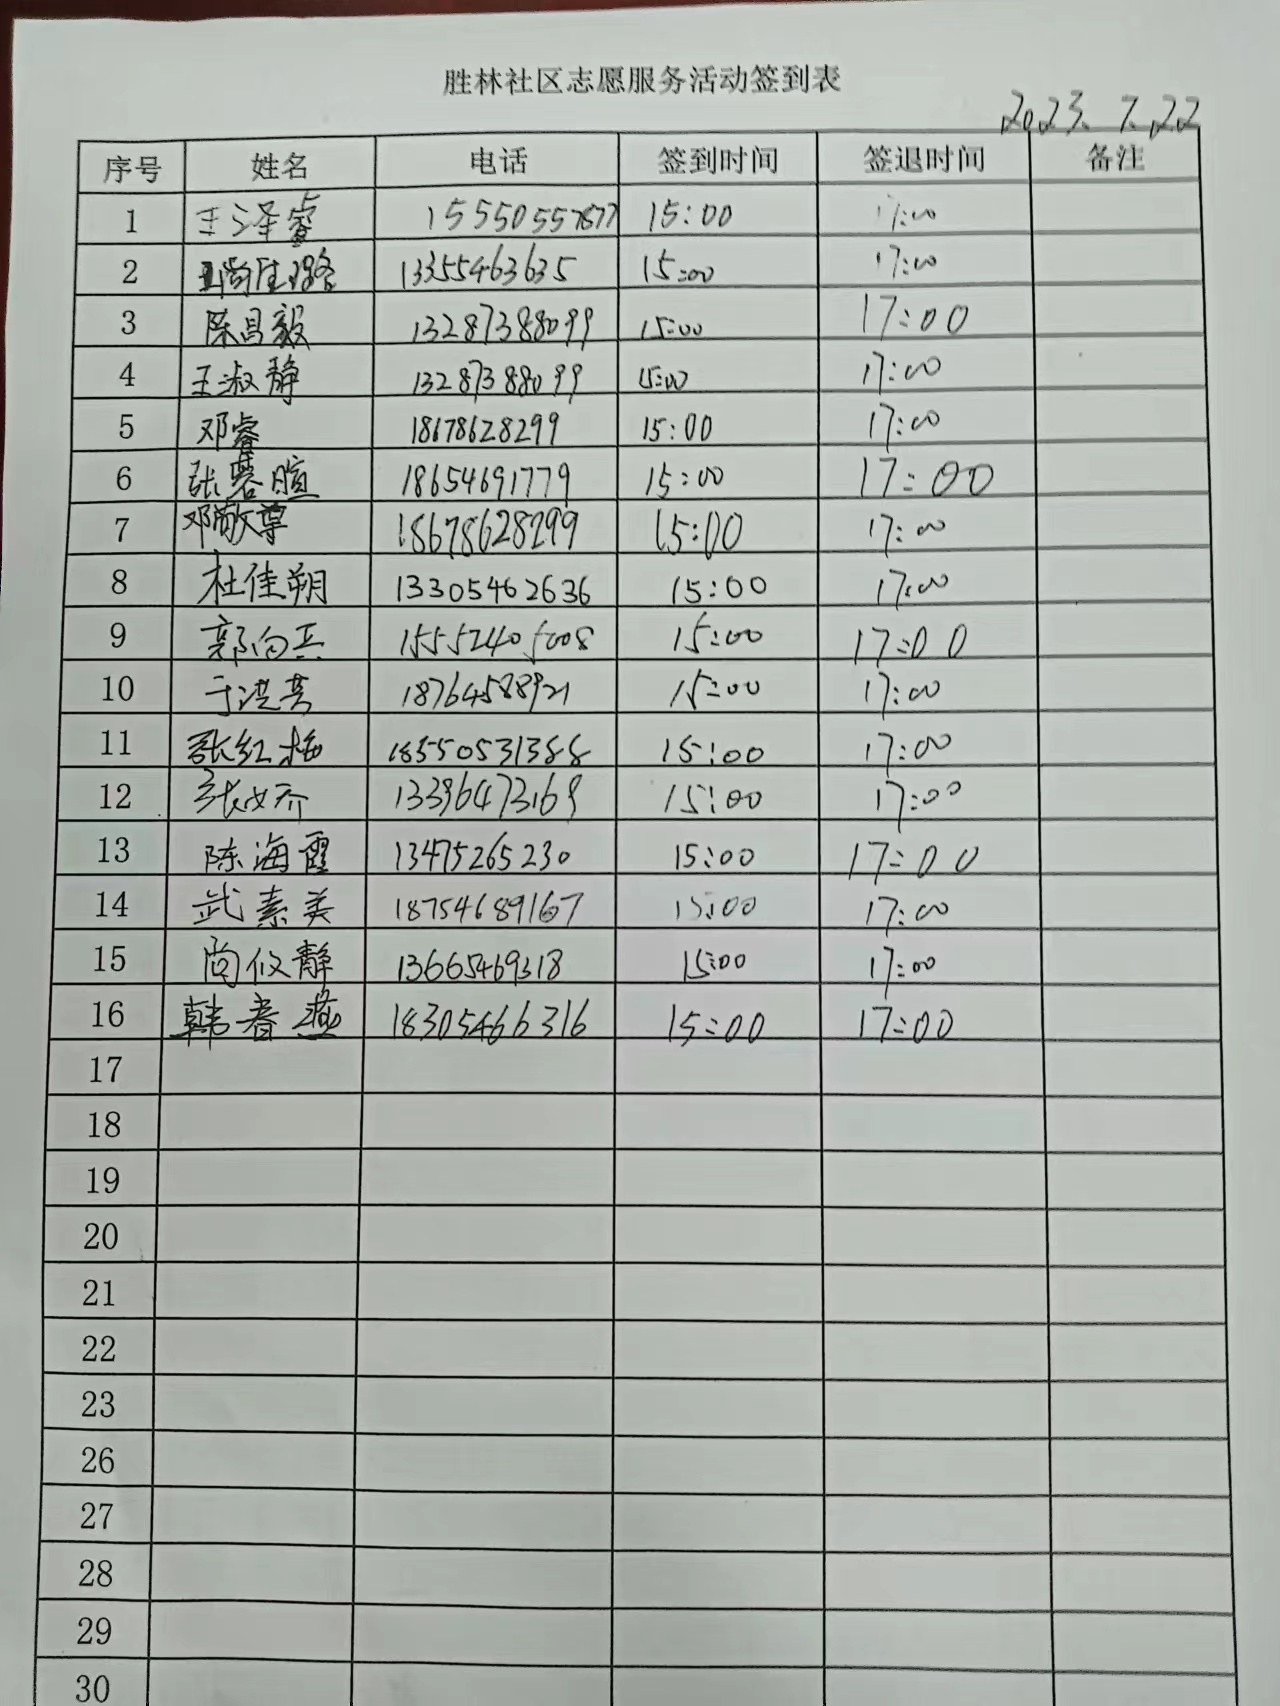 胜林社区志愿服务活动签到表
2023.7.22
序号 姓名 电话 签到时间 签退时间 备注
1 王泽睿 15550557677 15:00 17:00
2 13355463635 15:00 17:00
3 陈昌毅 13287388099 15:00 17:00
4 王淑静 13287388099 15:00 17:00
5 邓睿 18678628299 15:00 17:00
6 张蓉暄 18654691779 15:00 17:00
7 邓敬尊 18678628299 15:00 17:00
8 杜佳朔 13305462636 15:00 17:00
9 郭向兵 15552405008 15:00 17:00
10 于洪英 18764588921 15:00 17:00
11 张红梅 18550531388 15:00 17:00
12 13396473169 15:00 17:00
13 陈海霞 13475265230 15:00 17:00
14 武素美 18754689167 15:00 17:00
15 尚仪静 13665469318 15:00 17:00
16 韩春燕 18305466316 15:00 17:00
17
18
19
20
21
22
23
26
27
28
29
30